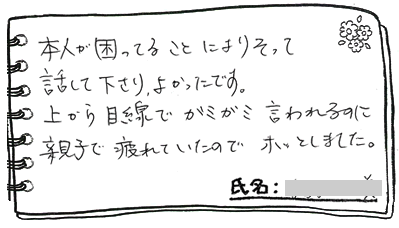 本人が困ってることによりそって
話して下さり、よかったです。
上から目線でガミガミ言われるのに
親子で疲れていたのでホッとしました。
氏名：